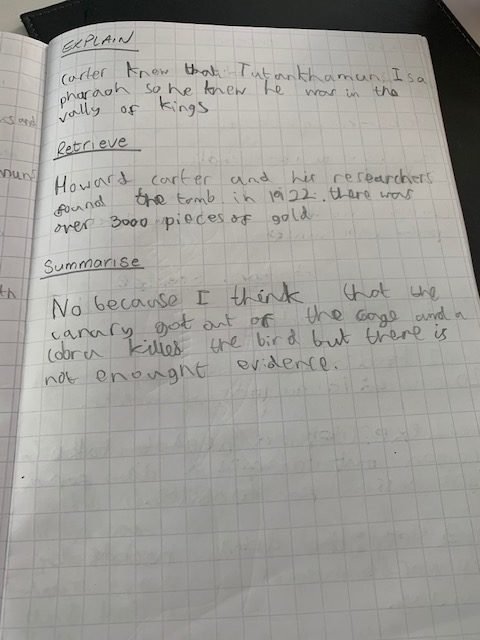 EXPLAIN
carter knew that Tutankhamun Is a
pharaoh so he knew he was in the
vally of kings
Retrieve
Howard carter and his researchers
found the tomb in 1922. there was
over 3000 pieces of gold
Summarise
No because I think that the
canary got out of the cage and a
cobra killes the bird but there is
not enought evidence.